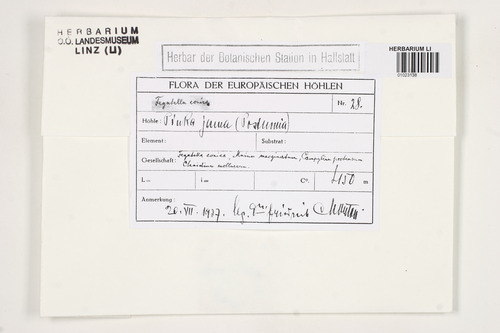 HERBARIUM
O.Ö. LANDESMUSEUM
LINZ (LI)
Herbar der Botanischen Station in Hallstatt
HERBARIUM LI
FLORA DER EUROPÄISCHEN HÖHLEN
Fegatella conica Nr. 28.
Höhle: Pinka Jama (Postumia)
Element: Substrat:
Gesellschaft: Fegatella conica, Mnium marginatum,
Ctenidium molluscum.
L= i= Ct. 450 m
Anmerkung:
20. VII. 1937. leg.